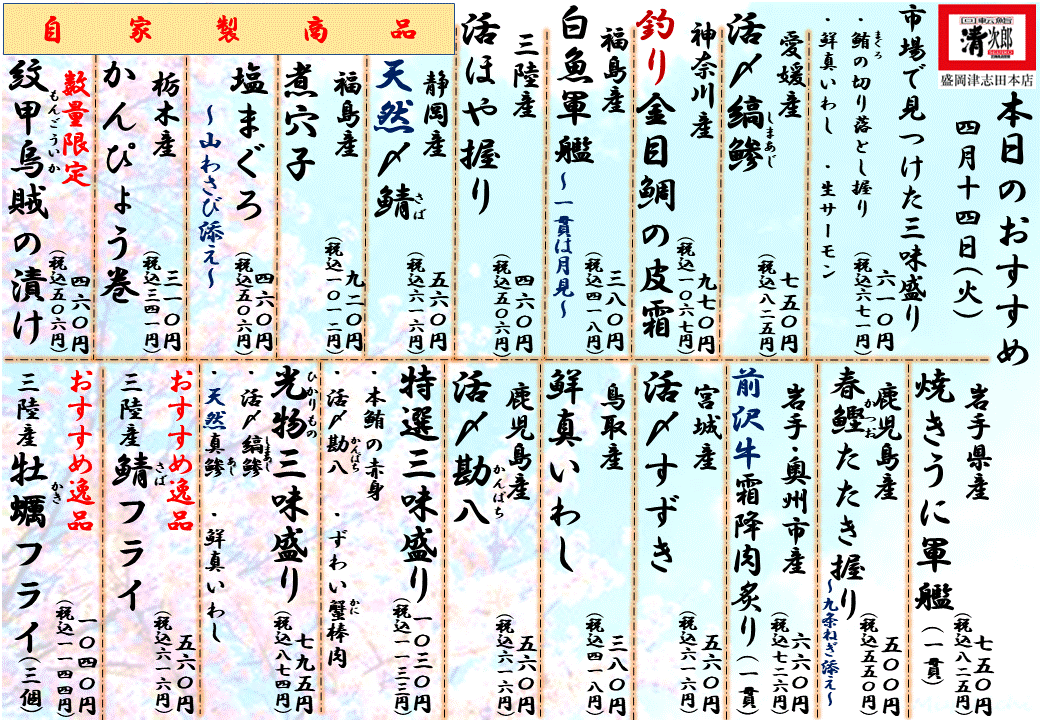 回転鮨
清次郎
盛岡津志田本店
本日のおすすめ
四月十四日(火)
市場で見つけた三味盛り
・鮪の切り落とし握り
まぐろ
・鮮真いわし ・生サーモン
六一〇円
(税込六七一円)
愛媛産
活〆縞鯵
しまあじ
七五〇円
(税込八二五円)
神奈川産
釣り金目鯛の皮霜
九七〇円
(税込一〇六七円)
福島産
白魚軍艦
~一貫は月見~
三八〇円
(税込四一八円)
三陸産
活ほや握り
四六〇円
(税込五〇六円)
自家製商品
静岡産
天然〆鯖
さば
五六〇円
(税込六一六円)
福島産
煮穴子
九二〇円
(税込一〇一二円)
塩まぐろ
~山わさび添え~
四六〇円
(税込五〇六円)
栃木産
かんぴょう巻
三一〇円
(税込三四一円)
数量限定
紋甲烏賊の漬け
もんごういか
四六〇円
(税込五〇六円)
岩手県産
焼きうに軍艦(一貫)
七五〇円
(税込八二五円)
鹿児島産
春鰹たたき握り
かつお
~九条ねぎ添え~
五〇〇円
(税込五五〇円)
岩手・奥州市産
前沢牛霜降肉炙り(一貫)
六六〇円
(税込七二六円)
宮城産
活〆すずき
五六〇円
(税込六一六円)
鳥取産
鮮真いわし
三八〇円
(税込四一八円)
鹿児島産
活〆勘八
かんぱち
五六〇円
(税込六一六円)
特選三味盛り
・本鮪の赤身
・活〆勘八 ・ずわい蟹棒肉
かんぱち
かに
一〇三〇円
(税込一一三三円)
光物三味盛り
ひかりもの
・活〆縞鯵
しまあじ
・天然真鯵 ・鮮真いわし
あじ
七九五円
(税込八七四円)
おすすめ逸品
三陸産鯖フライ
さば
五六〇円
(税込六一六円)
おすすめ逸品
三陸産牡蠣フライ(三個)
かき
一〇四〇円
(税込一一四四円)